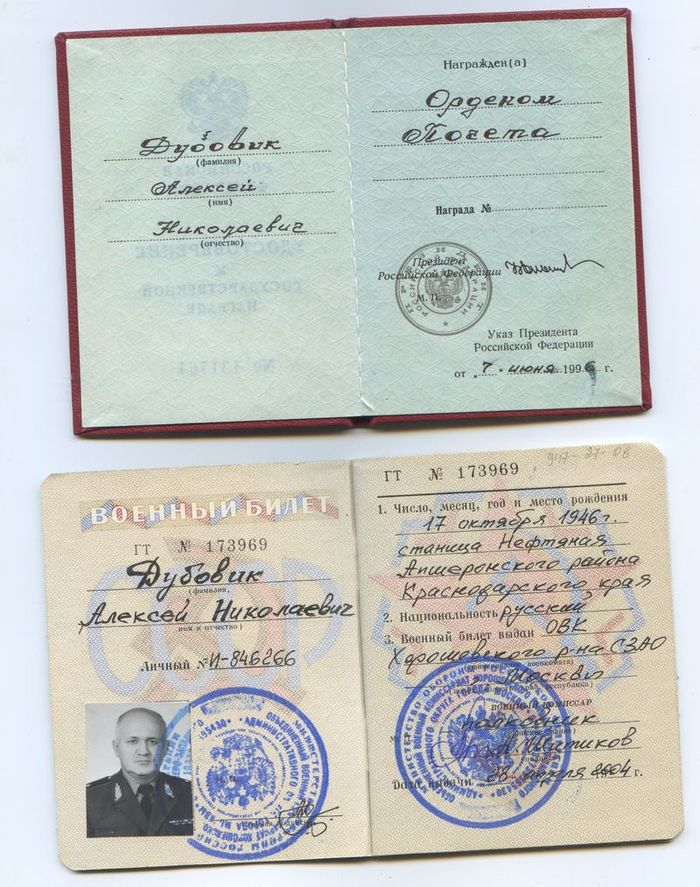 Дубовик
(фамилия)
Алексей
(имя)
Николаевич
(отчество)
Награжден(а)
Орденом
Почета
Награда №
Президент
Российской Федерации
М. П.
Указ Президента
Российской Федерации
от "7" июня 1996 г.
УДОСТОВЕРЕНИЕ
К
ГОСУДАРСТВЕННОЙ
НАГРАДЕ
№ 131761
ВОЕННЫЙ БИЛЕТ
ГТ № 173969
Дубовик
(фамилия,
Алексей Николаевич
имя и отчество)
Личный № И-846266
ГТ № 173969
947-27-06
1. Число, месяц, год и место рождения
17 октября 1946 г.
станица Нефтяная
Апшеронского района
Краснодарского края
2. Национальность русский
3. Военный билет выдан ОВК
Хорошевского р-на СЗАО
Москвы
ВОЕННЫЙ КОМИССАР
полковник
Дата выдачи 08 апреля 2004 г.